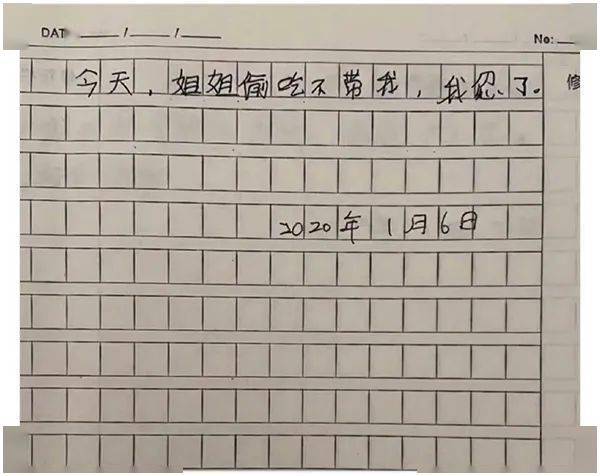 DAT ____/____/____
No: __
今天，姐姐偷吃不带我，我忍了。
修
2020年1月6日